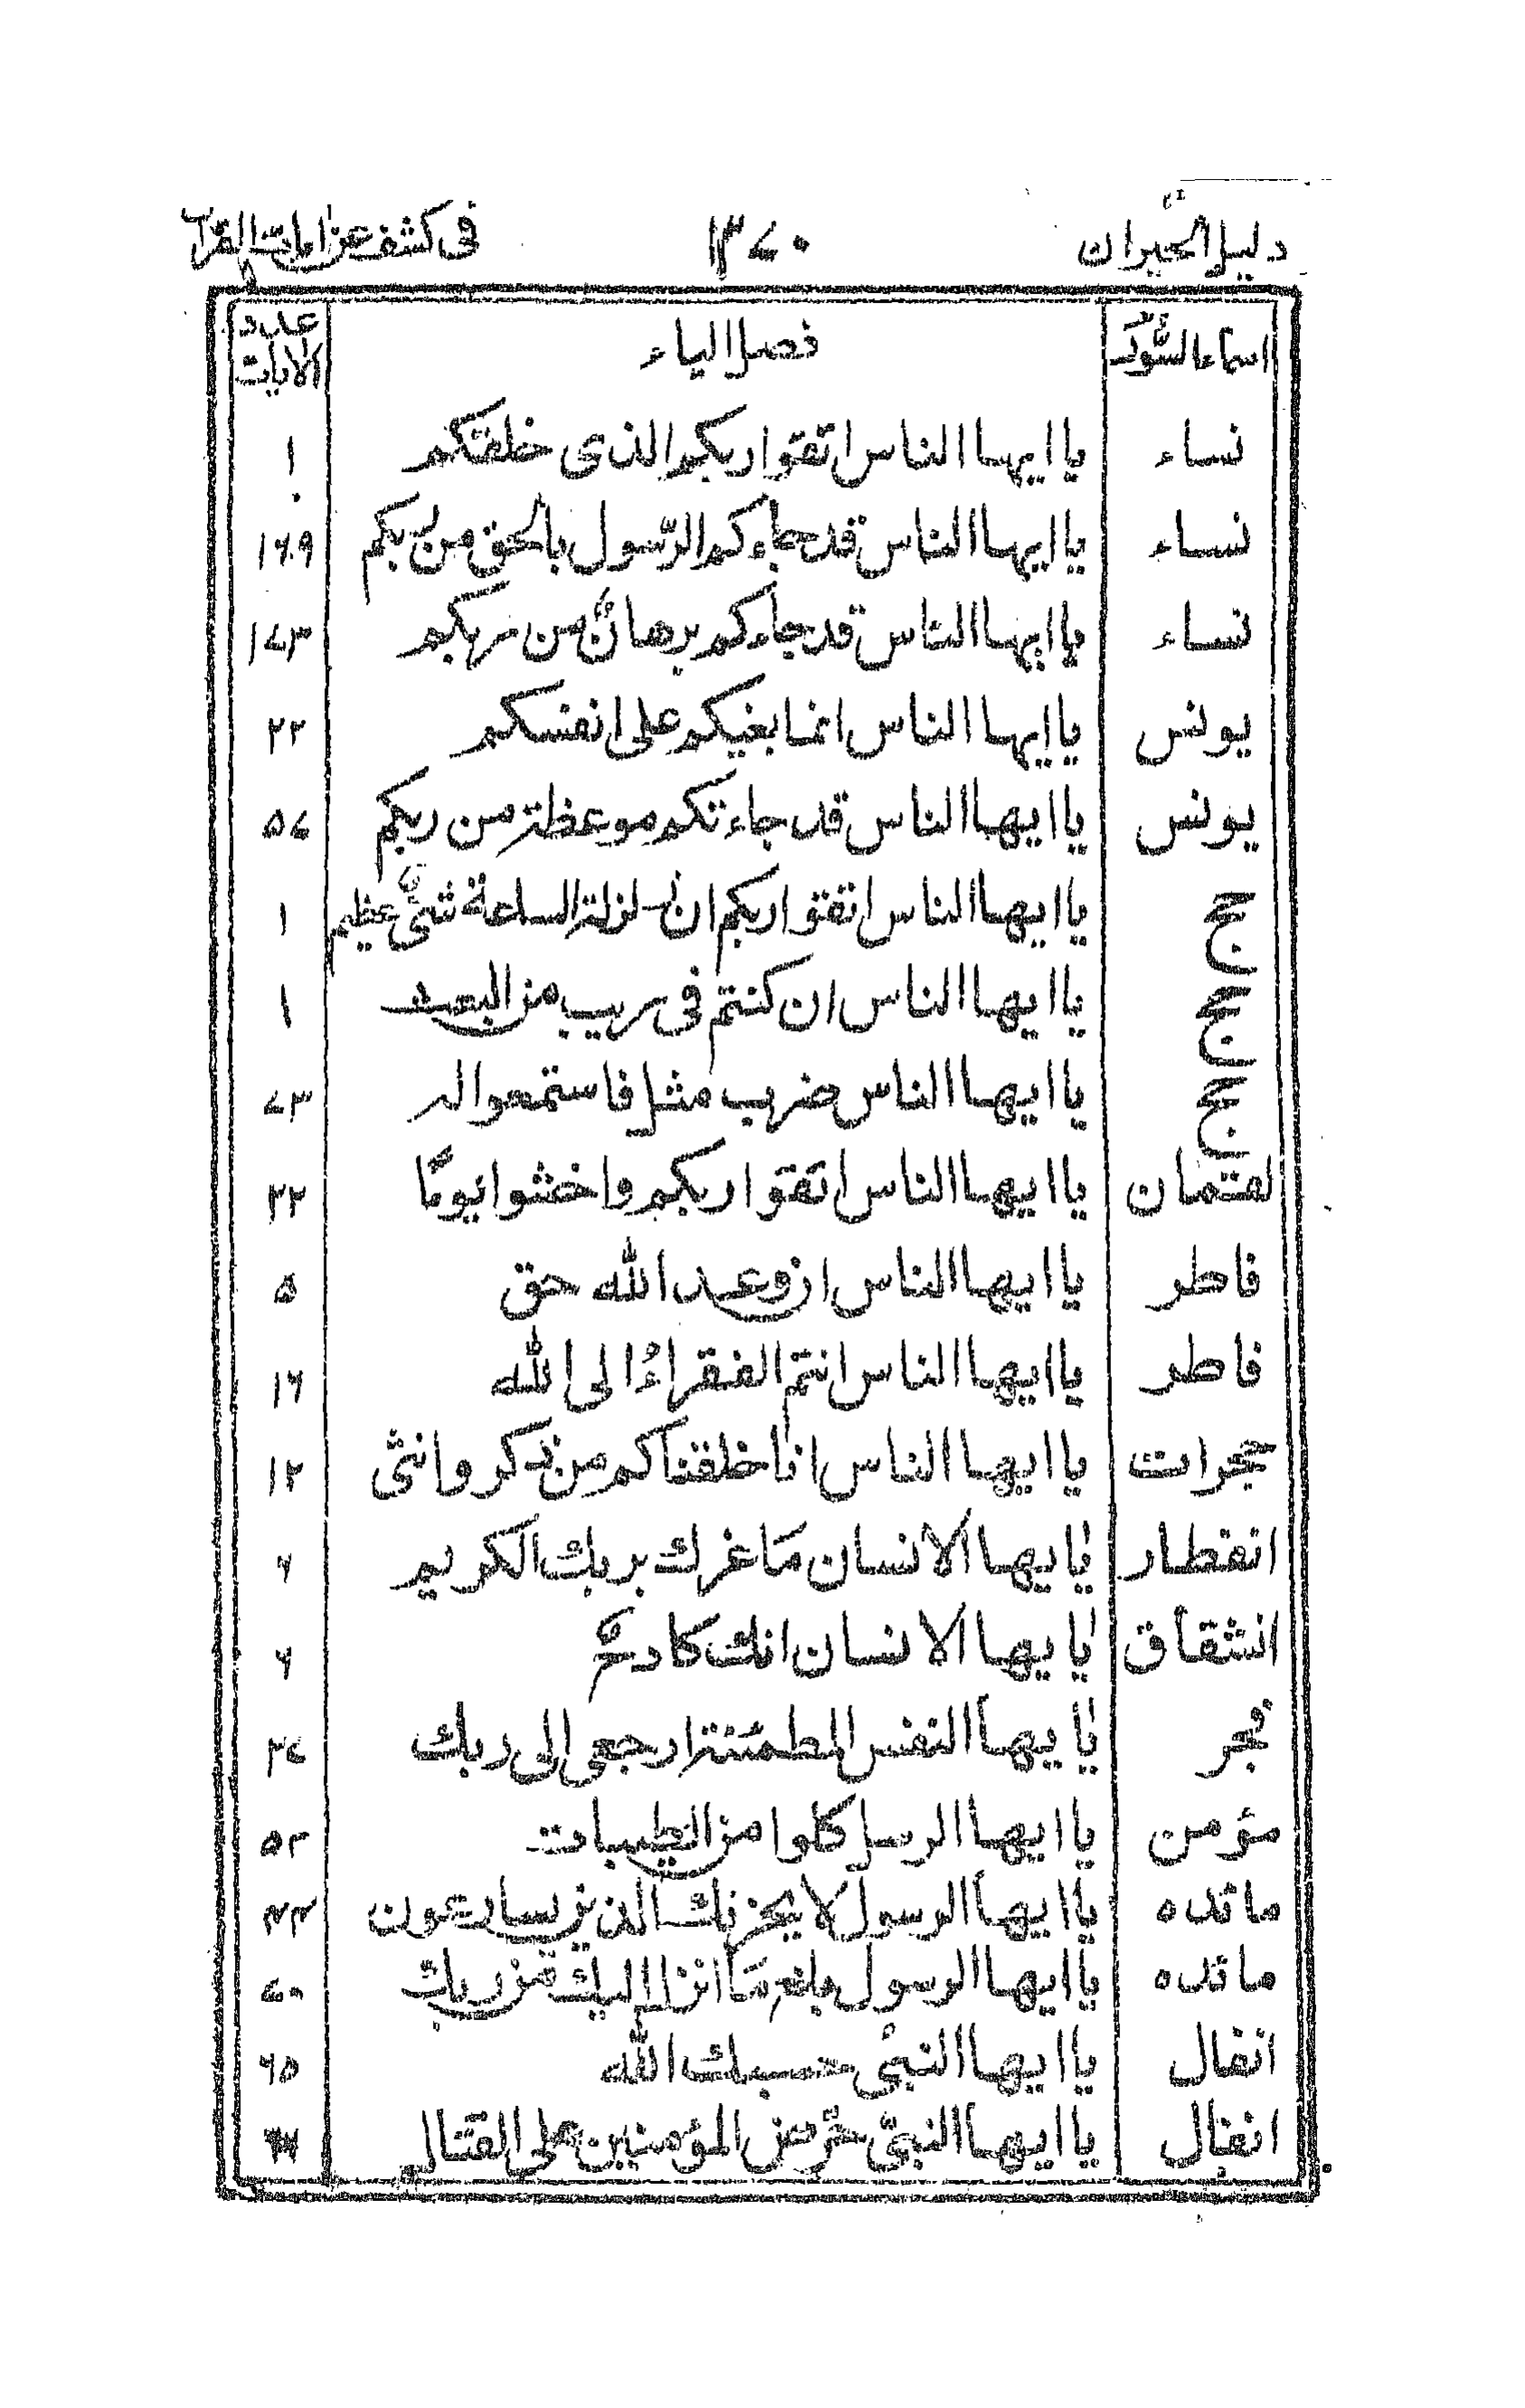 دليل الحيران ١٣٧٠ فى كشف عن اٰيات القرآن
اسماء السُّوَر فصل الياء عدد الايات
نساء يا ايها الناس اتقوا ربكم الذى خلقتكم ١
نساء يا ايها الناس قد جاءكم الرّسول بالحق من ربكم ١٦٩
نساء يا ايها الناس قد جاءكم برهانٌ من ربكم ١٧٣
يونس يا ايها الناس انما بغيكم على انفسكم ٢٢
يونس يا ايها الناس قد جاءتكم موعظة من ربكم ٥٧
حج يا ايها الناس اتقوا ربكم ان زلزلة الساعة شئٌ عظيم ١
حج يا ايها الناس ان كنتم فى ريب من البعث ١
حج يا ايها الناس ضرب مثل فاستمعوا له ٧٣
لقمان يا ايها الناس اتقوا ربكم واخشوا يومًا ٣٢
فاطر يا ايها الناس ان وعد الله حق ٥
فاطر يا ايها الناس انتم الفقراءُ الى الله ١٦
حجرات يا ايها الناس انا خلقناكم من ذكر وانثى ١٢
انفطار يٰايها الانسان مَا غرك بربك الكريم ٦
انشقاق يٰايها الانسان انك كادحٌ ٦
فجر يٰايها النفس المطمئنة ارجعى الى ربك ٢٧
مؤمن يا ايها الرسل كلوا من الطيبات ٥٢
مائده يا ايها الرسول لا يحزنك الذين يسارعون ٤٤
مائده يا ايها الرسول بلغ مَا انزل اليك من ربك ٧٠
انفال يا ايها النبى حسبك الله ٦٥
انفال يا ايها النبىّ حرّض المؤمنين على القتال